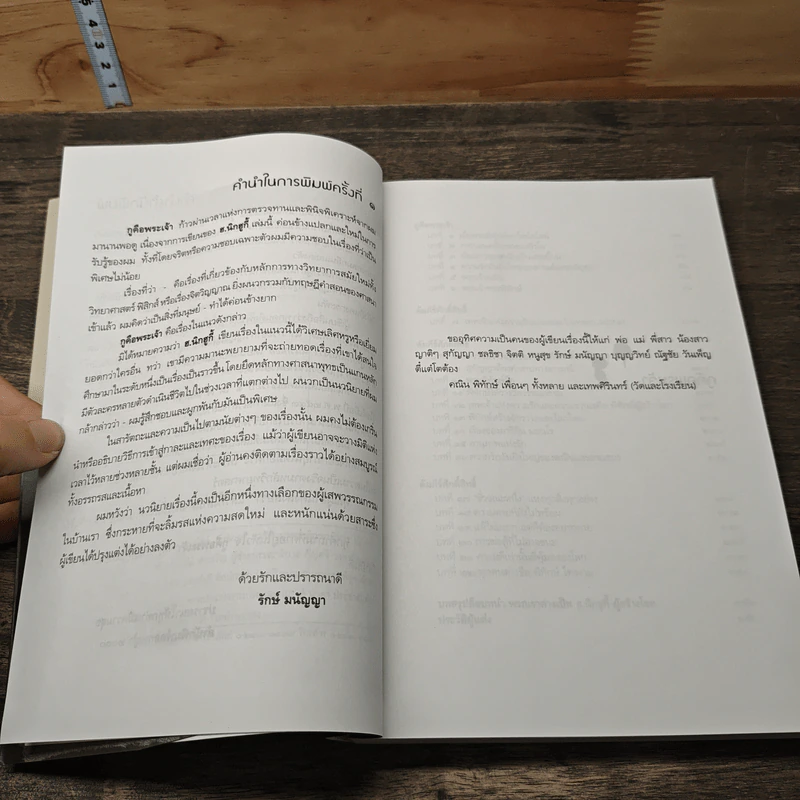 5
4
3
2
1
คำนำในการพิมพ์ครั้งที่ ๑
กูคือพระเจ้า ก้าวผ่านเวลาแห่งการตรวจทานและพินิจพิเคราะห์จากผม
มานานพอดู เนื่องจากการเขียนของ ฮ.นิกฮูกี้ เล่มนี้ ค่อนข้างแปลกและใหม่ในการ
รับรู้ของผม ทั้งที่โดยจริตหรือความชอบเฉพาะตัวผมมีความชอบในเรื่องที่ว่าเป็น
พิเศษไม่น้อย
เรื่องที่ว่า - คือเรื่องที่เกี่ยวข้องกับหลักการทางวิทยาการสมัยใหม่ทั้ง
วิทยาศาสตร์ ฟิสิกส์ หรือเรื่องจิตวิญญาณ ยิ่งผนวกรวมกับทฤษฎีคำสอนของศาสนา
เข้าแล้ว ผมคิดว่าเป็นสิ่งที่มนุษย์ - ทำได้ค่อนข้างยาก
กูคือพระเจ้า คือเรื่องในแนวดังกล่าว
มิได้หมายความว่า ฮ.นิกฮูกี้ เขียนเรื่องในแนวนี้ได้วิเศษเลิศหรูหรือเยี่ยม
ยอดกว่าใครอื่น ทว่า เขามีความมานะพยายามที่จะถ่ายทอดเรื่องที่เขาได้สนใจ
ศึกษามาในระดับหนึ่งเป็นเรื่องเป็นราวขึ้น โดยยึดหลักทางศาสนาพุทธเป็นแกนหลัก
มีตัวละครหลายตัวดำเนินชีวิตไปในช่วงเวลาที่แตกต่างไป ผนวกเป็นนวนิยายที่ผม
กล้ากล่าวว่า - ผมรู้สึกชอบและผูกพันกับมันเป็นพิเศษ
ในสารัตถะและความเป็นไปตามนัยต่างๆ ของเรื่องนั้น ผมคงไม่ต้องเกริ่น
นำหรืออธิบายวิธีการเข้าสู่กาละและเทศะของเรื่อง แม้ว่าผู้เขียนอาจจะวางมิติแห่ง
เวลาไว้หลายช่วงหลายชั้น แต่ผมเชื่อว่า ผู้อ่านคงติดตามเรื่องราวได้อย่างสมบูรณ์
ทั้งอรรถรสและเนื้อหา
ผมหวังว่า นวนิยายเรื่องนี้คงเป็นอีกหนึ่งทางเลือกของผู้เสพวรรณกรรม
ในบ้านเรา ซึ่งกระหายที่จะลิ้มรสแห่งความสดใหม่ และหนักแน่นด้วยสาระซึ่ง
ผู้เขียนได้ปรุงแต่งได้อย่างลงตัว
ด้วยรักและปรารถนาดี
รักษ์ มนัญญา
ขออุทิศความเป็นคนของผู้เขียนเรื่องนี้ให้แก่ พ่อ แม่ พี่สาว น้องสาว
ญาติๆ สุกัญญา ชลธิชา จิตติ หนูสุข รักษ์ มนัญญา บุญญวิทย์ ณัฐชัย วันเพ็ญ
ตี๋แต่โตต้อง
คณิน พิทักษ์ เพื่อนๆ ทั้งหลาย และเทพศิรินทร์ (วัดและโรงเรียน)